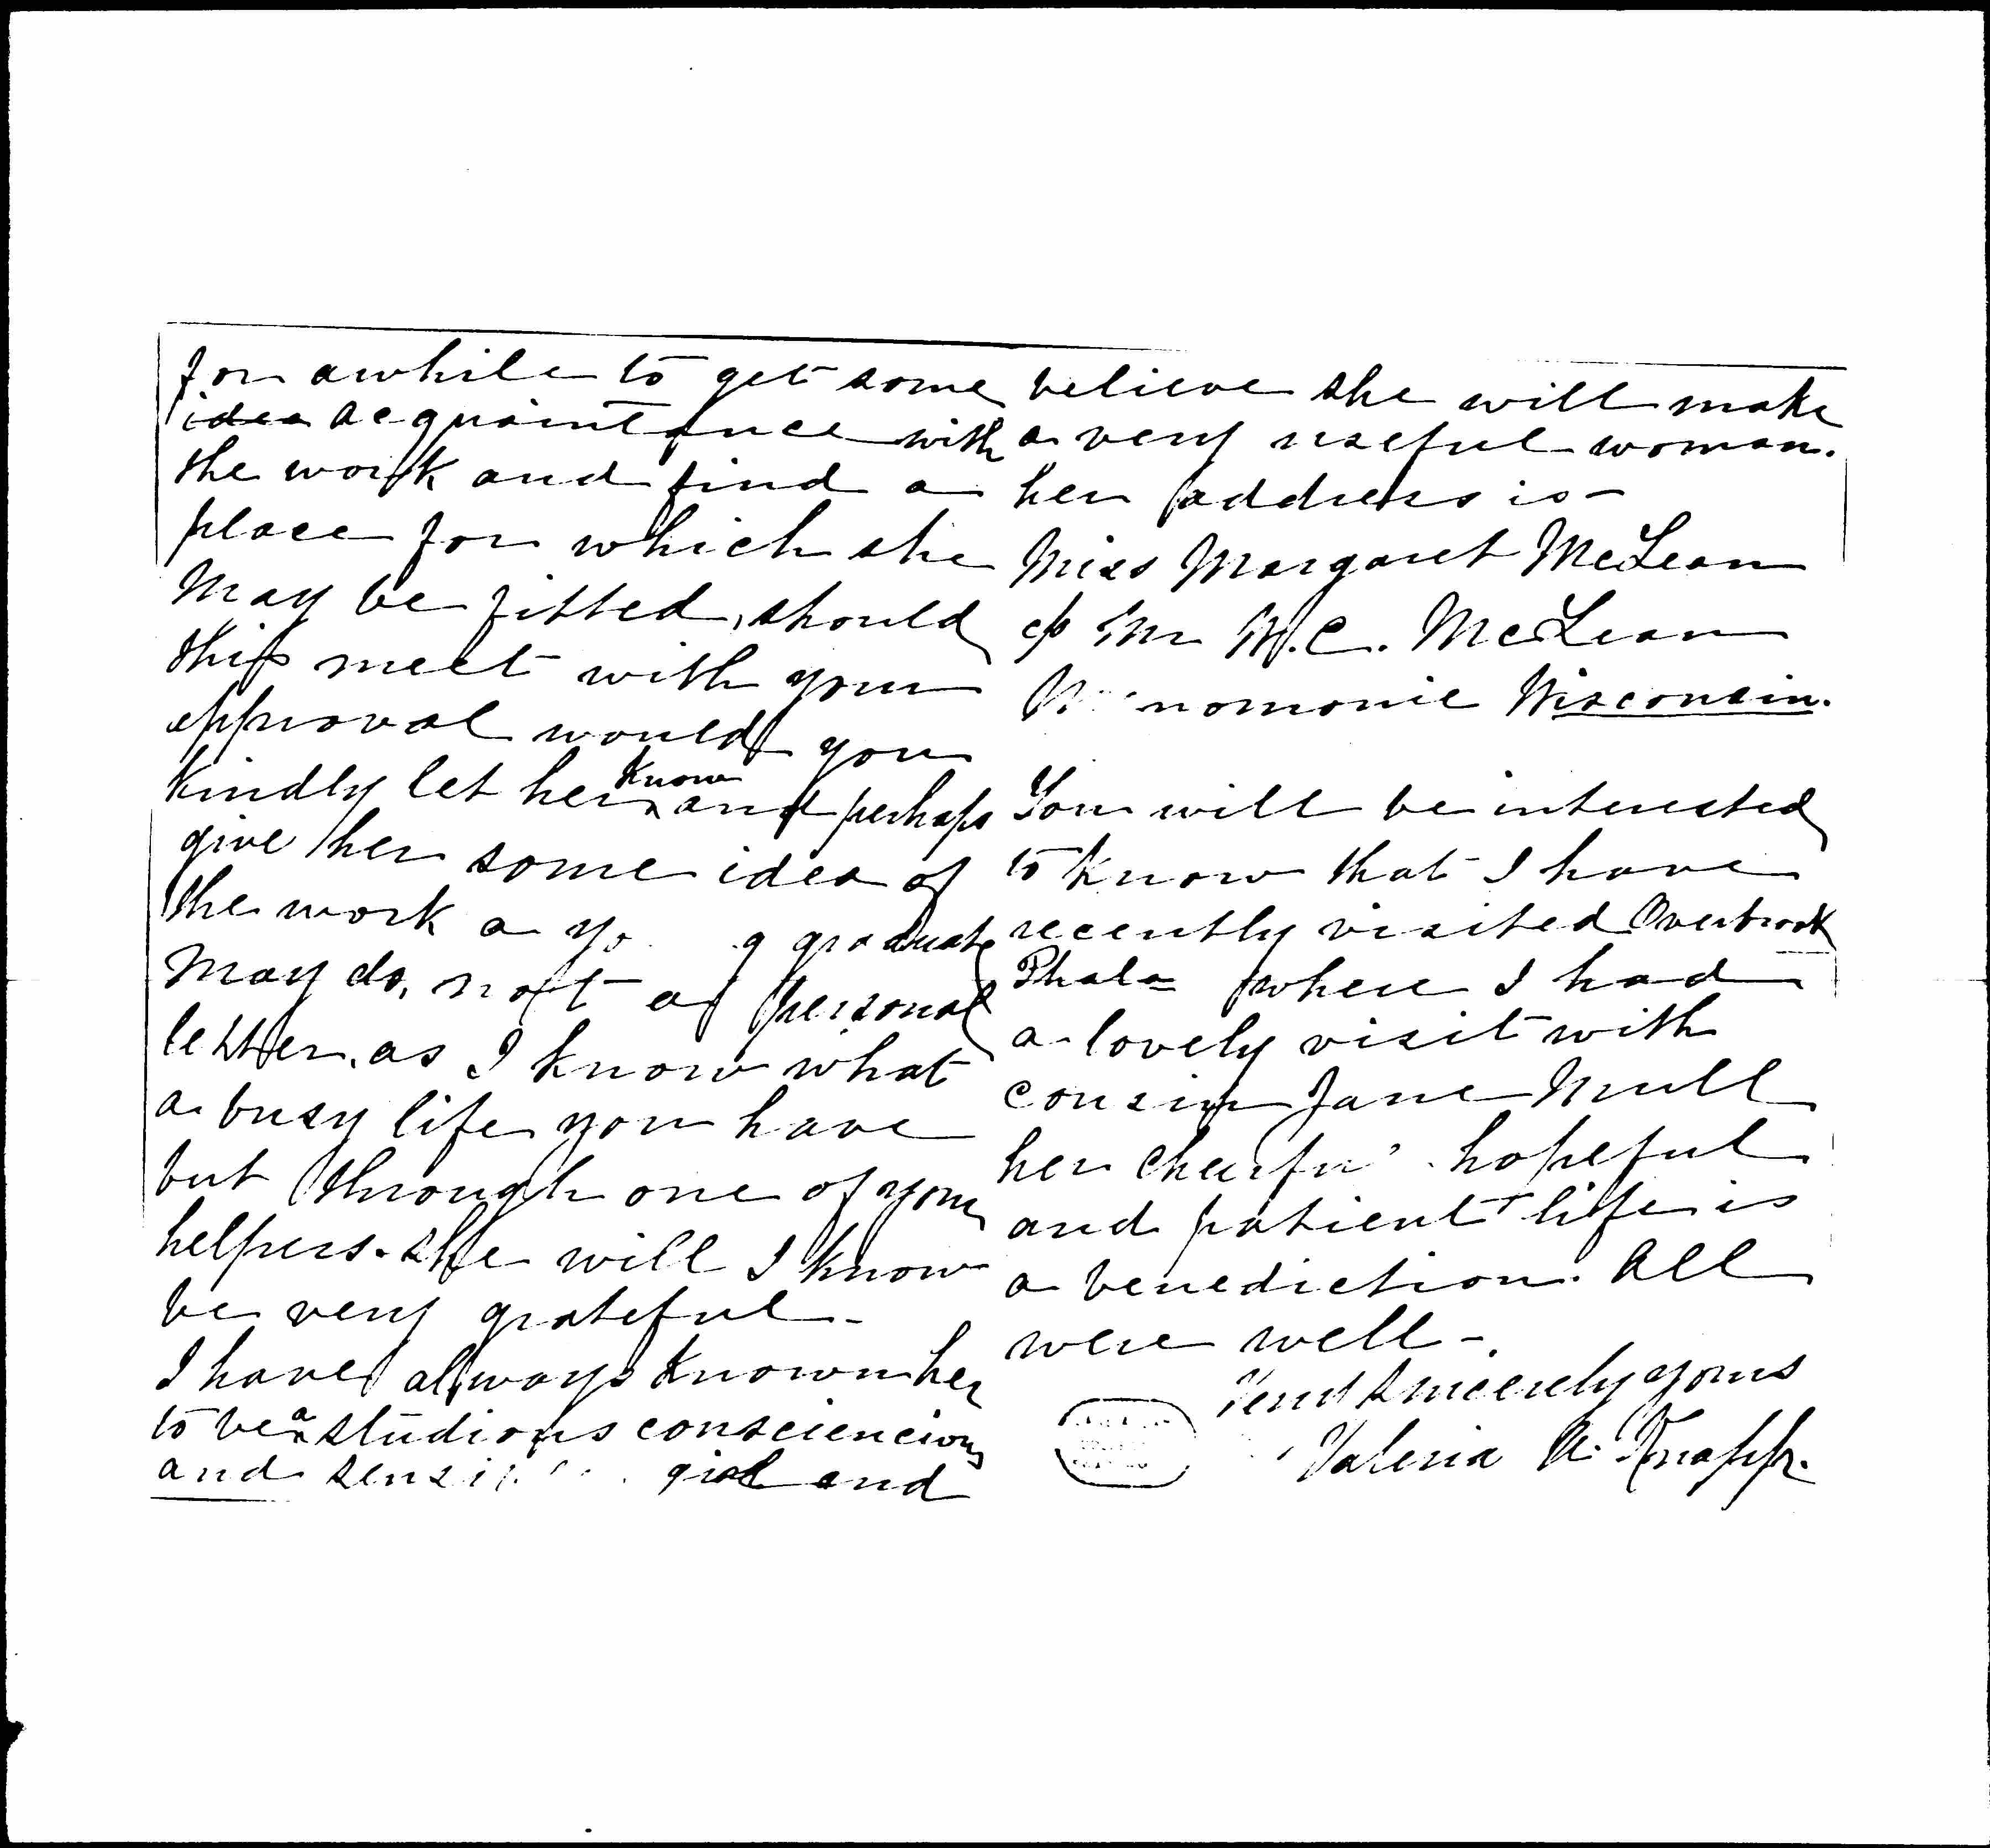 for awhile to get some
idea acquaintance with
the work and find a
place for which she
may be fitted, should
this meet with your
approval would you
kindly let her know and perhaps
give her some idea of
the work a graduate
may do, not a personal
letter, as I know what
a busy life you have
but through one of your
helpers. she will I know
be very grateful-
I have always known her
to be a studious consciencious
and girl and
believe she will make
a very useful woman.
her address is-
Miss Margaret McLean
c/o Mr W.C. McLean
Wisconsin.
You will be interested
to know that I have
recently visited Overbrook
Phala= where I had
a lovely visit with
cousin Jane Mull
her hopeful
and patient life is
a benediction. All
were well-.
Very sincerely yours
Valeria Knapp.